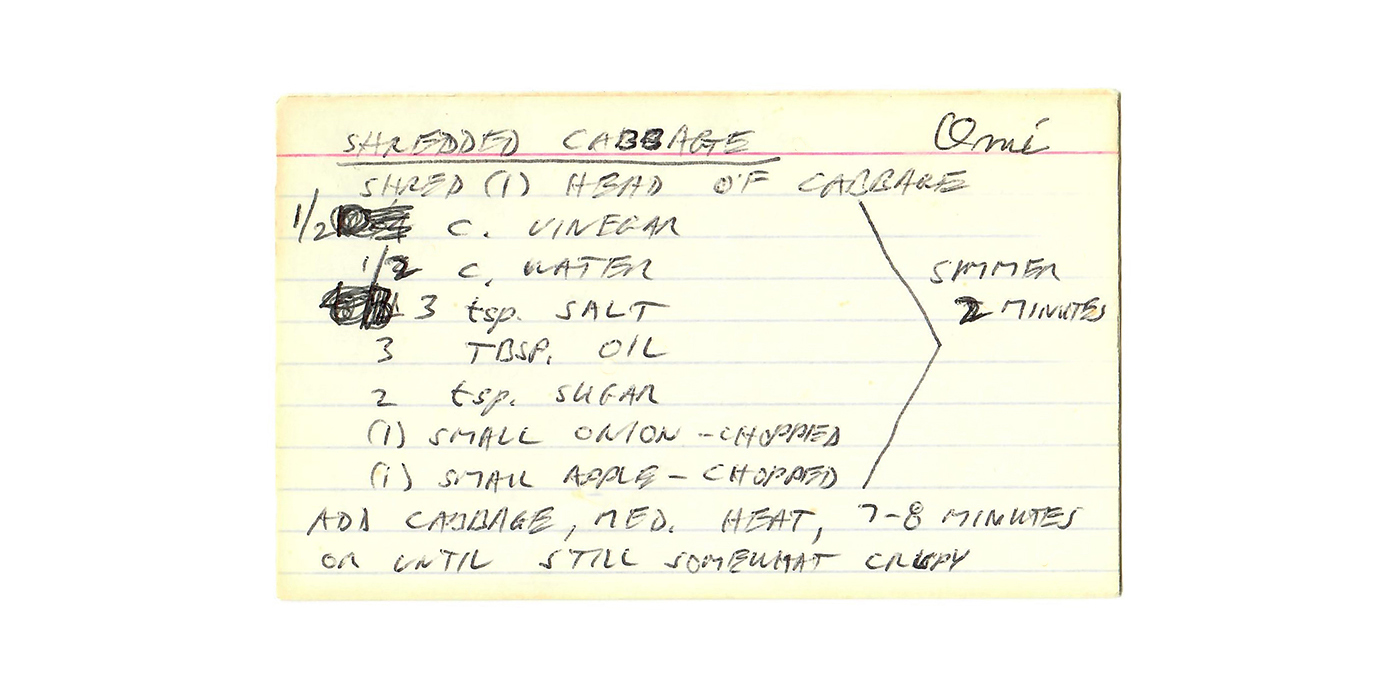 SHREDDED CABBAGE Omi
SHRED (1) HEAD OF CABBAGE
1/2 C. VINEGAR
1/2 C. WATER
SIMMER
3 tsp. SALT
2 MINUTES
3 TBSP. OIL
2 tsp. SUGAR
(1) SMALL ONION - CHOPPED
(1) SMALL APPLE - CHOPPED
ADD CABBAGE, MED. HEAT, 7-8 MINUTES
OR UNTIL STILL SOMEWHAT CRISPY